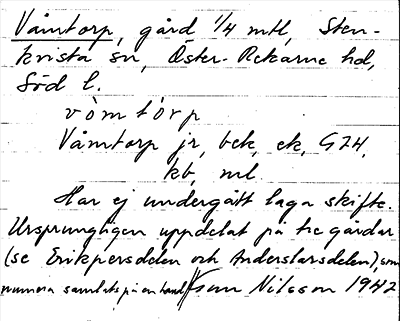 Våmtorp, gård 1/4 mtl, Sten-
kvista sn, Öster-Rekarne hd,
Söd l.
vòmtórp
Våmtorp jr, bek, ek, GZH,
kb, ml.
Har ej undergått laga skifte.
Ursprungligen uppdelat på tre gårdar
(se Erikpersdelen och Anderslarsdelen), som
numera samlats på en hand. Nilsson 1942